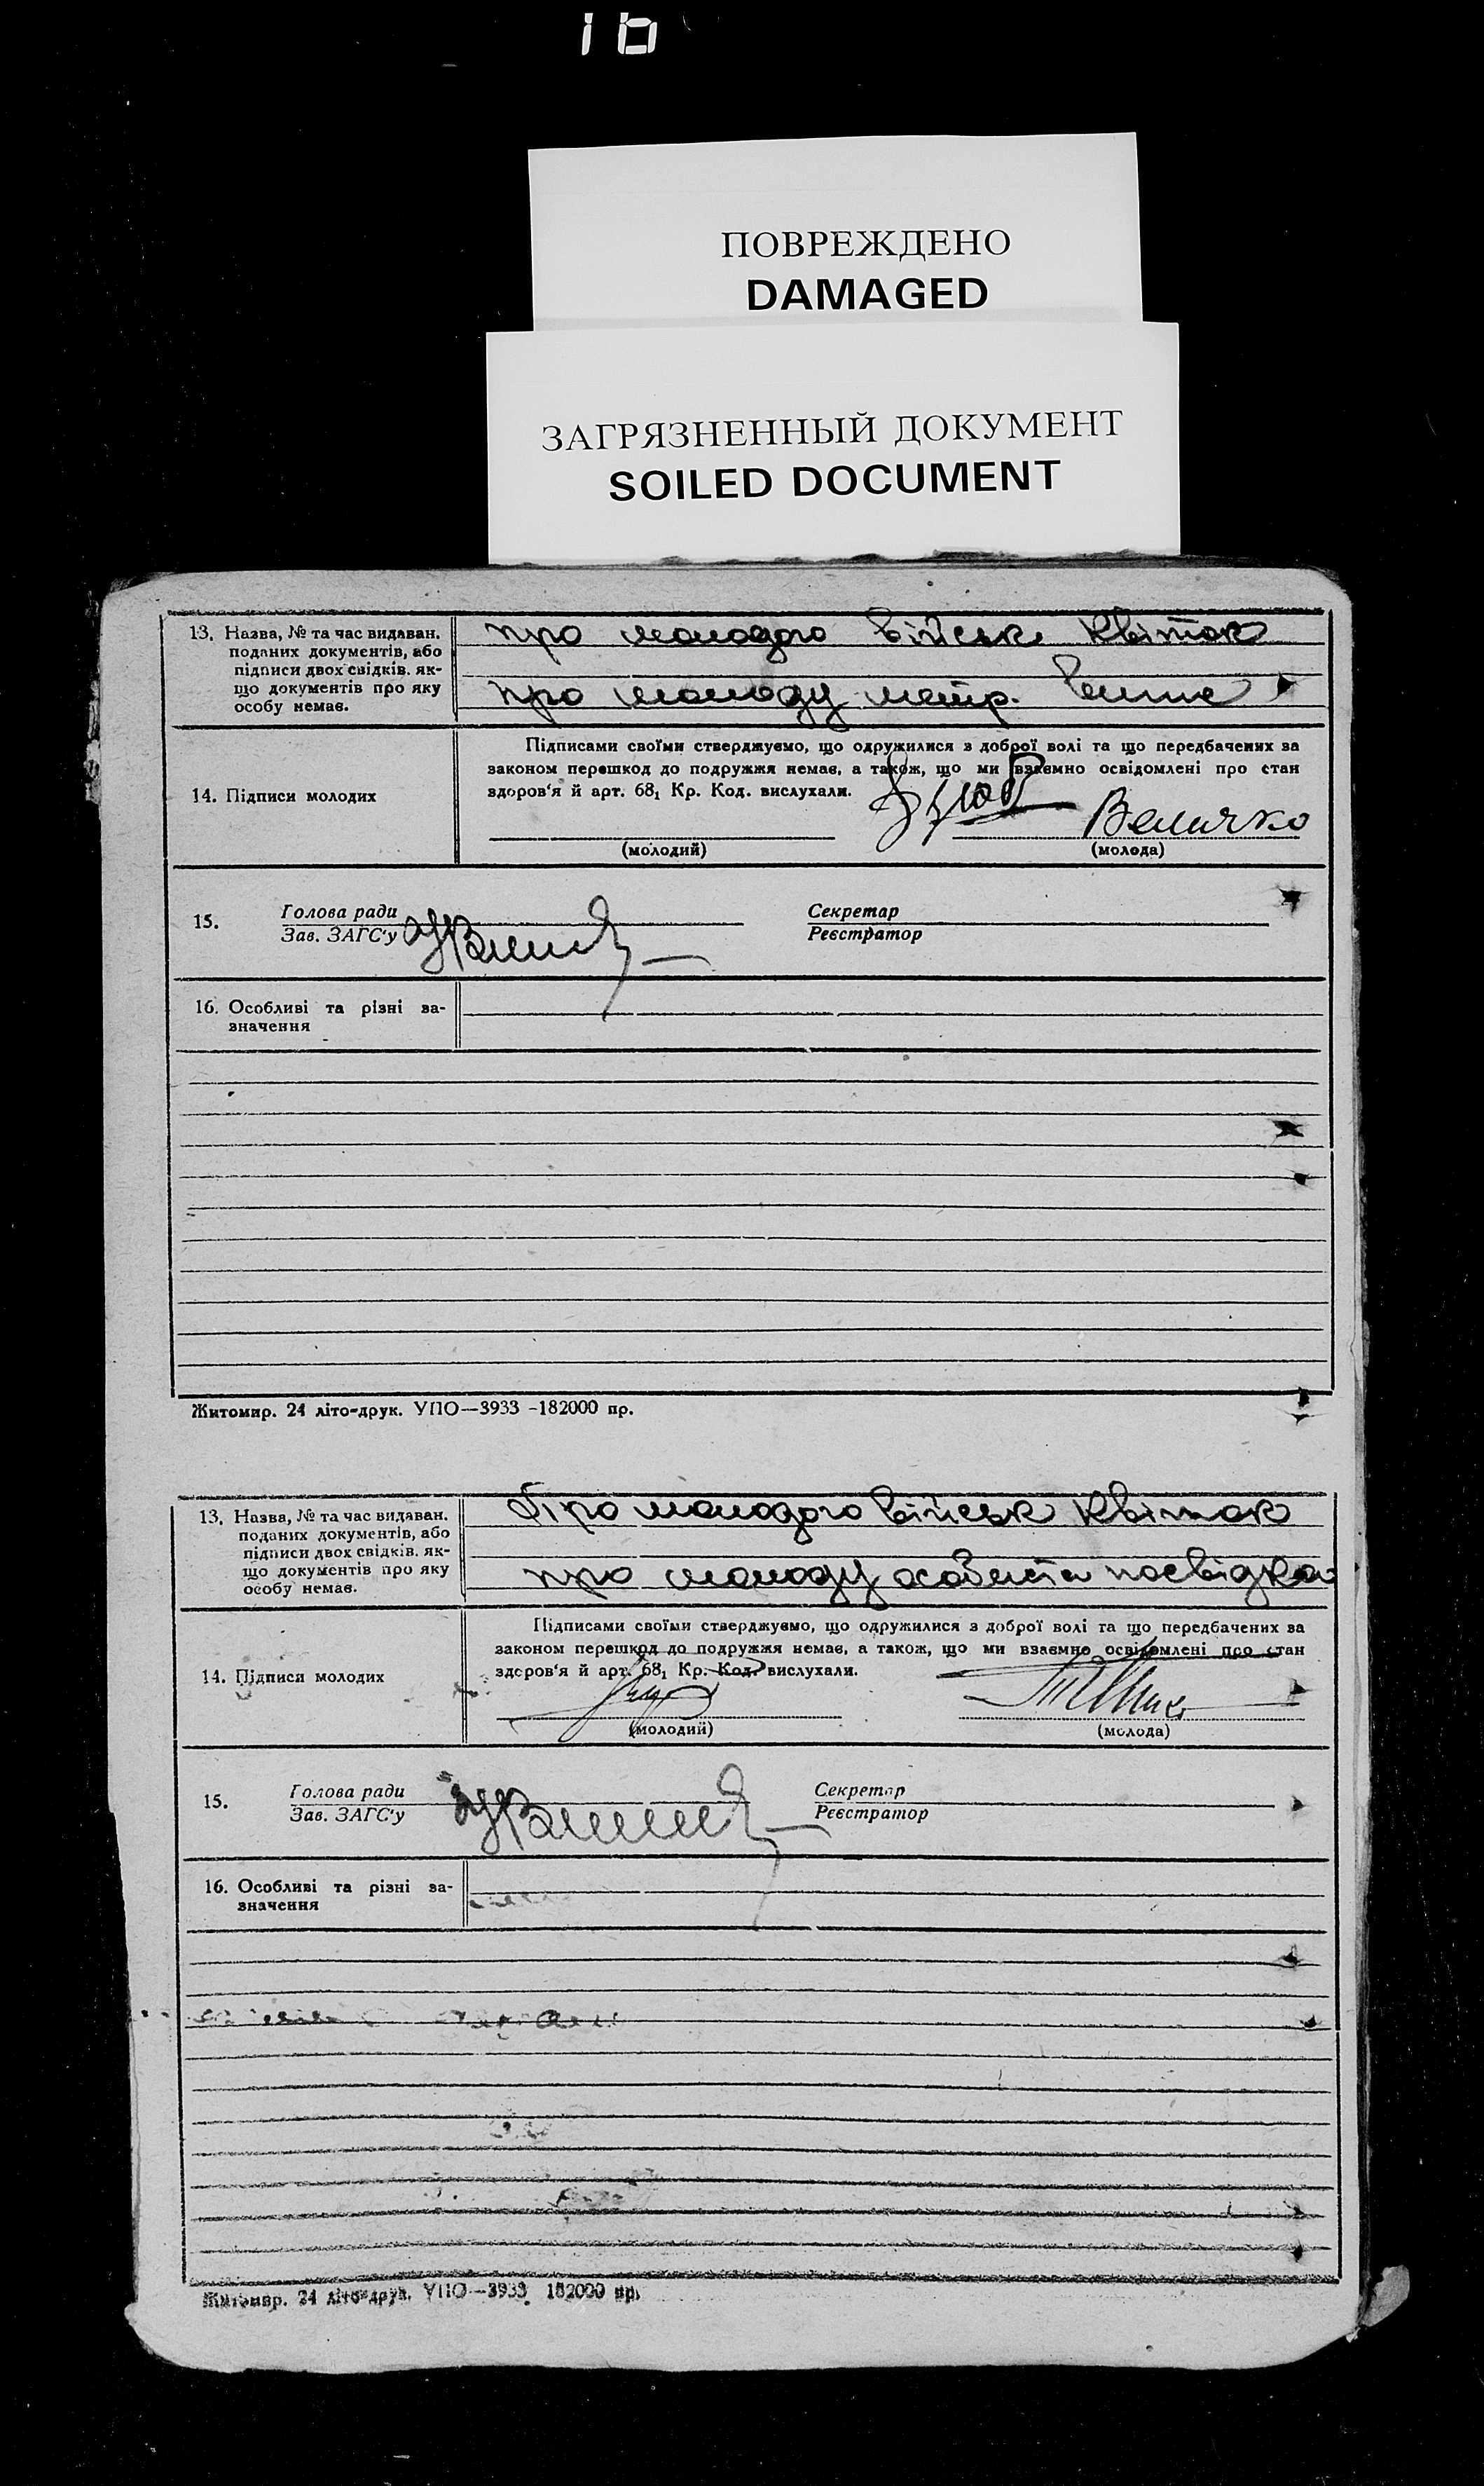 16
ПОВРЕЖДЕНО
DAMAGED
ЗАГРЯЗНЕННЫЙ ДОКУМЕНТ
SOILED DOCUMENT
13. Назва, № та час видаван.
поданих документів, або
підписи двох свідків. як-
що документів про яку
особу немає.
про молодого військ квиток
про молоду метр. випис
14. Підписи молодих
Підписами своїми стверджуємо, що одружилися з доброї волі та що передбачених за
законом перешкод до подружжя немає, а також, що ми взаємно освідомлені про стан
здоров'я й арт. 68₁ Кр. Код. вислухали.
Величко
(молодий) (молода)
15. Голова ради
Зав. ЗАГС'у
Секретар
Реєстратор
16. Особливі та різні за-
значення
Житомир. 24 літо-друк. УПО—3933 -182000 пр.
13. Назва, № та час видаван.
поданих документів, або
підписи двох свідків. як-
що документів про яку
особу немає.
Про молодого військ квіток
про молоду особиста посвідка
14. Підписи молодих
Підписами своїми стверджуємо, що одружилися з доброї волі та що передбачених за
законом перешкод до подружжя немає, а також, що ми взаємно освідомлені про стан
здоров'я й арт. 68₁ Кр. Код. вислухали.
(молодий) (молода)
15. Голова ради
Зав. ЗАГС'у
Секретар
Реєстратор
16. Особливі та різні за-
значення
Житомир. 24 літо-друк. УПО—3933 182000 пр.